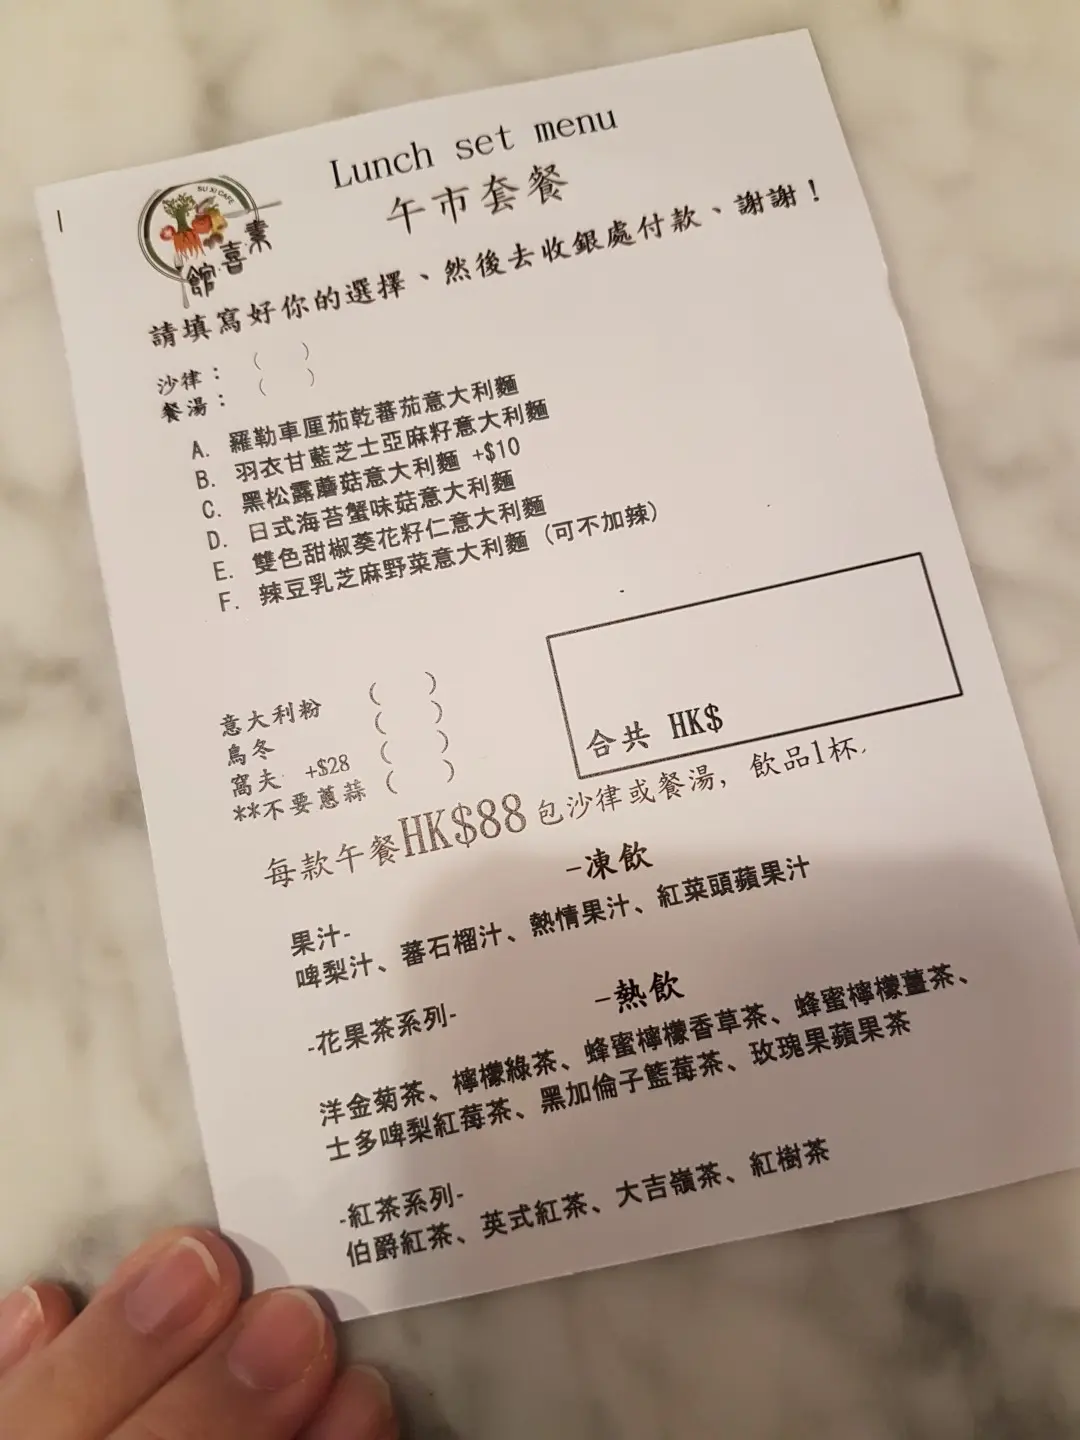 Lunch set menu
午市套餐
SU XI CAFE
素喜館
請填寫好你的選擇、然後去收銀處付款、謝謝！
沙律： （ ）
餐湯： （ ）
A. 羅勒車厘茄乾蕃茄意大利麵
B. 羽衣甘藍芝士亞麻籽意大利麵
C. 黑松露蘑菇意大利麵 +$10
D. 日式海苔蟹味菇意大利麵
E. 雙色甜椒葵花籽仁意大利麵
F. 辣豆乳芝麻野菜意大利麵 (可不加辣)
意大利粉 ( )
烏冬 ( )
窩夫 +$28 ( )
**不要蔥蒜 ( )
合共 HK$
每款午餐HK$88包沙律或餐湯，飲品1杯.
-凍飲
果汁-
啤梨汁、蕃石榴汁、熱情果汁、紅菜頭蘋果汁
-熱飲
-花果茶系列-
洋金菊茶、檸檬綠茶、蜂蜜檸檬香草茶、蜂蜜檸檬薑茶、
士多啤梨紅莓茶、黑加倫子籃莓茶、玫瑰果蘋果茶
-紅茶系列-
伯爵紅茶、英式紅茶、大吉嶺茶、紅樹茶